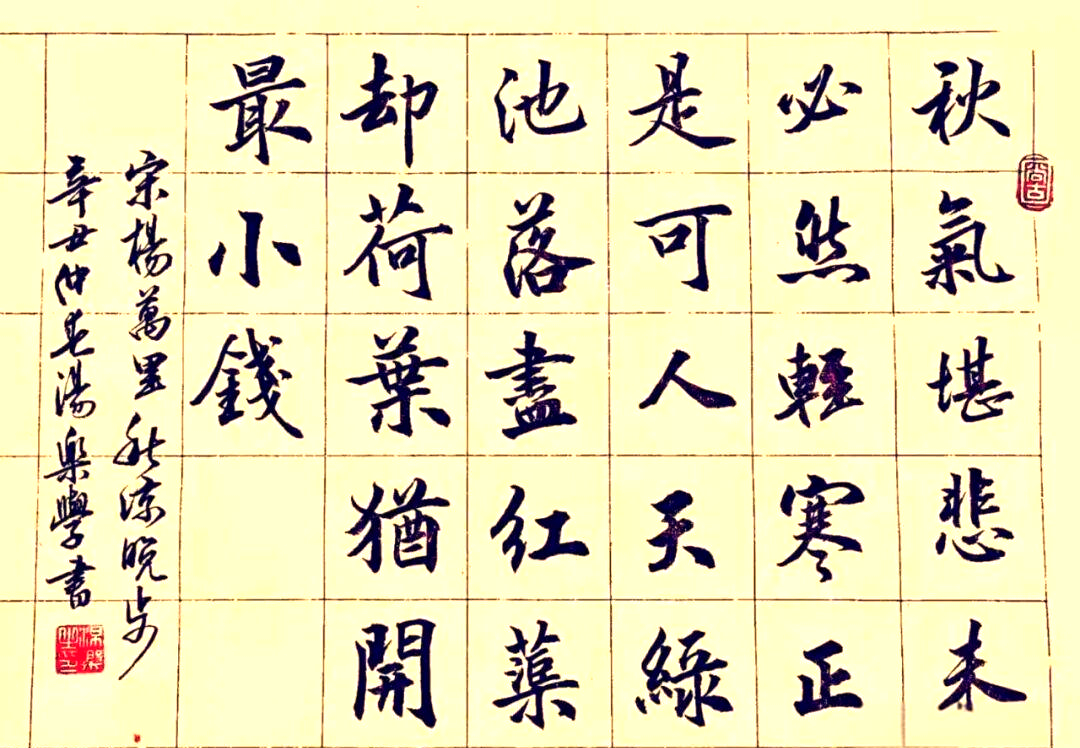 秋氣堪悲未
必然輕寒正
是可人天綠
池落盡紅蕖
却荷葉猶開
最小錢
宋楊萬里秋涼晚步
辛丑仲春湯樂學書
尚古